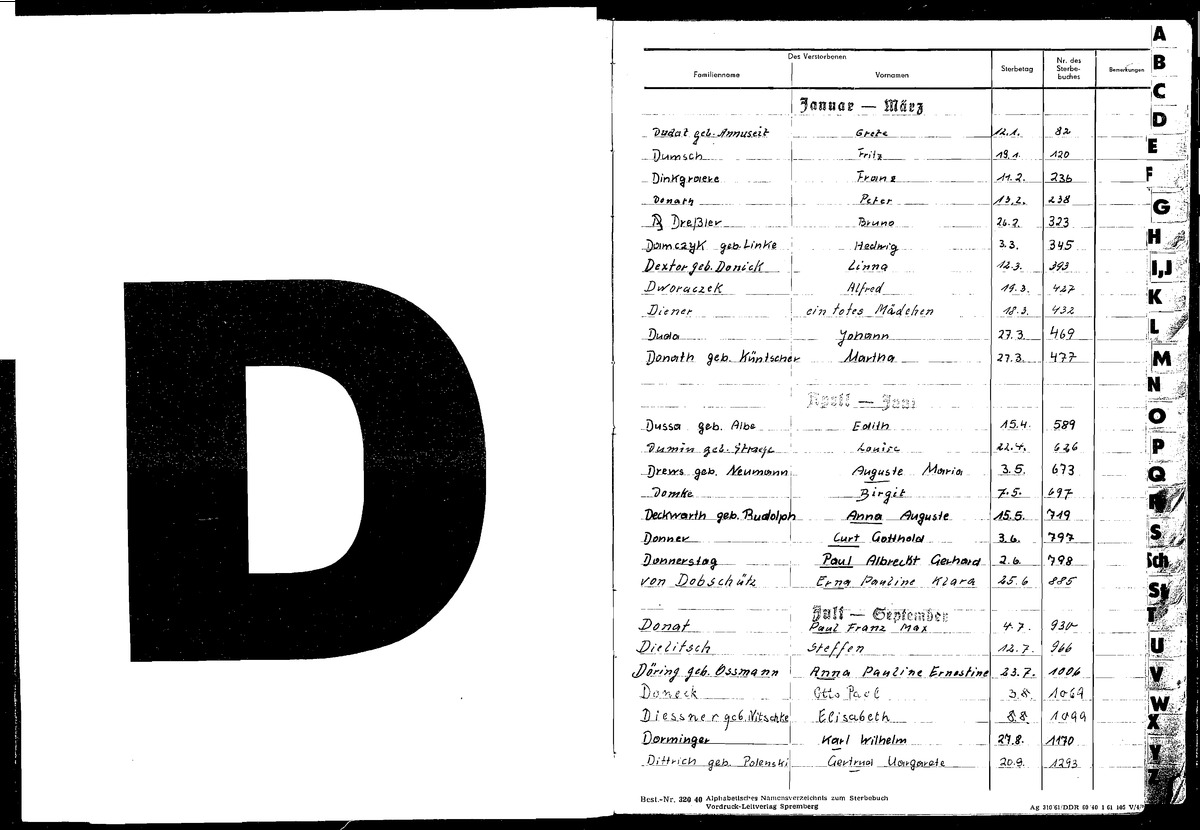 D
Des Verstorbenen
Familienname Vornamen Sterbetag Nr. des Sterbe-buches Bemerkungen
Januar — März
Dudat geb. Annuseit Grete 12.1. 82
Dumsch Fritz 19.1. 120
Dinkgraeve Franz 11.2. 236
Donath Peter 13.2. 238
Dreßler Bruno 26.2. 323
Damczyk geb. Linke Hedwig 3.3. 345
Dextor geb. Donick Linna 12.3. 393
Dworaczek Alfred 19.3. 427
Diener ein totes Mädchen 18.3. 432
Duda Johann 27.3. 469
Donath geb. Küntscher Martha 27.3. 477
April — Juni
Dussa geb. Albe Edith 15.4. 589
Dumin geb. Louise 22.4. 626
Drews geb. Neumann Auguste Maria 3.5. 673
Domke Birgit 7.5. 697
Deckwarth geb. Rudolph Anna Auguste 15.5. 719
Donner Curt Gotthold 3.6. 797
Donnerstag Paul Albrecht Gerhard 2.6. 798
von Dobschütz Erna Pauline Klara 25.6 885
Juli — September
Donat Paul Franz Max 4.7. 930
Dielitsch Steffen 12.7. 966
Döring geb. Ossmann Anna Pauline Ernestine 23.7. 1006
Doneck Otto Paul 3.8. 1069
Diessner geb. Nitschke Elisabeth 8.8. 1099
Dorminger Karl Wilhelm 27.8. 1170
Dittrich geb. Polenski Gertrud Margarete 20.9. 1293
Best.-Nr. 320 40 Alphabetisches Namensverzeichnis zum Sterbebuch
Vordruck-Leitverlag Spremberg
Ag 310/61/DDR 60 40 1 61 105
A
B
C
D
E
F
G
H
I,J
K
L
M
N
O
P
Q
R
S
Sch
St
T
U
V
W
X
Y
Z